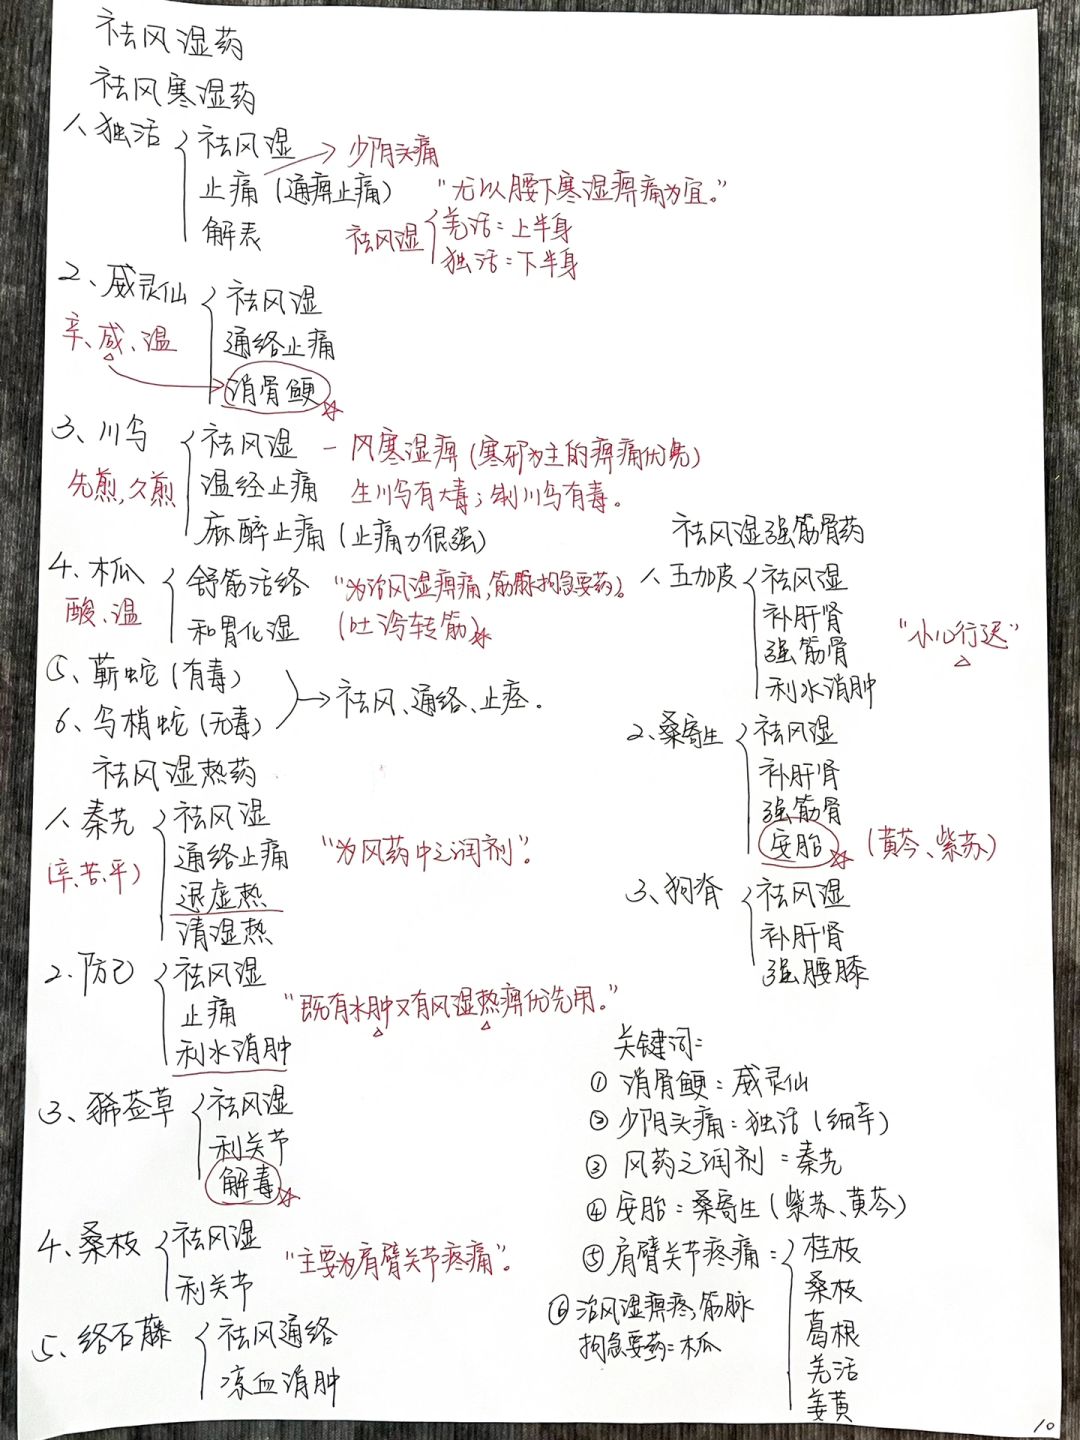 祛风湿药
祛风寒湿药
1、独活
祛风湿
止痛（通痹止痛）
解表
少阴头痛
“尤以腰下寒湿痹痛为宜。”
祛风湿
羌活：上半身
独活：下半身
2、威灵仙
辛、咸、温
祛风湿
通络止痛
消骨鲠
3、川乌
先煎，久煎
祛风湿 - 风寒湿痹（寒邪为主的痹痛优先）
温经止痛 生川乌有大毒；制川乌有毒。
麻醉止痛（止痛力很强）
4、木瓜
酸、温
舒筋活络 “为治风湿痹痛，筋脉拘急要药。
和胃化湿（吐泻转筋）
⑤、蕲蛇（有毒）
6、乌梢蛇（无毒）
祛风、通络、止痉。
祛风湿热药
1、秦艽
（辛、苦、平）
祛风湿
通络止痛
退虚热
清湿热
“为风药中之润剂”。
2、防己
祛风湿
止痛
利水消肿
“既有水肿又有风湿热痹优先用。”
3、豨莶草
祛风湿
利关节
解毒
4、桑枝
祛风湿
利关节
“主要为肩臂关节疼痛”。
5、络石藤
祛风通络
凉血消肿
祛风湿强筋骨药
1、五加皮
祛风湿
补肝肾
强筋骨
利水消肿
“小儿行迟”
2、桑寄生
祛风湿
补肝肾
强筋骨
安胎
（黄芩、紫苏）
3、狗脊
祛风湿
补肝肾
强腰膝
关键词：
① 消骨鲠：威灵仙
② 少阴头痛：独活（细辛）
③ 风药之润剂：秦艽
④ 安胎：桑寄生（紫苏、黄芩）
⑤ 肩臂关节疼痛：
桂枝
桑枝
葛根
羌活
姜黄
⑥ 治风湿痹疼，筋脉
拘急要药：木瓜
10